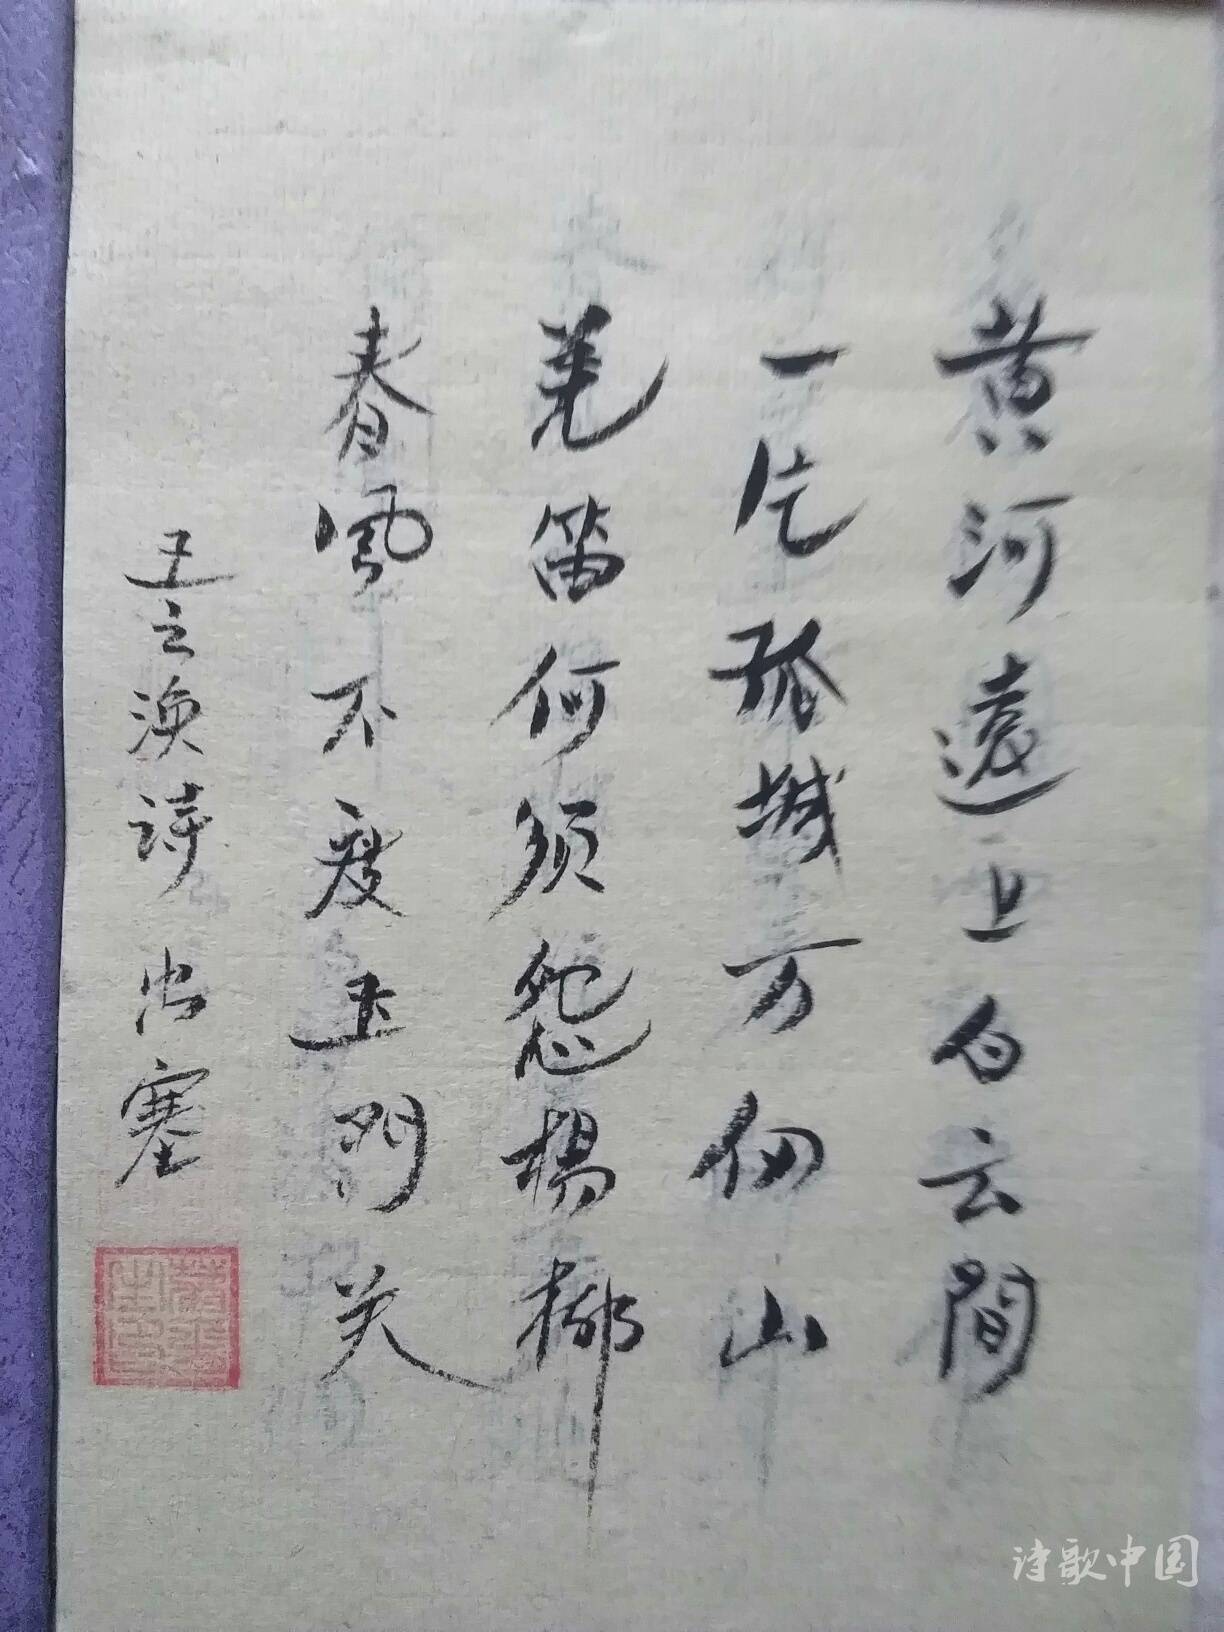 黄河遠上白云間
一片孤城万仞山
羌笛何须怨楊柳
春風不度玉门关
王之涣诗出塞
诗歌中国